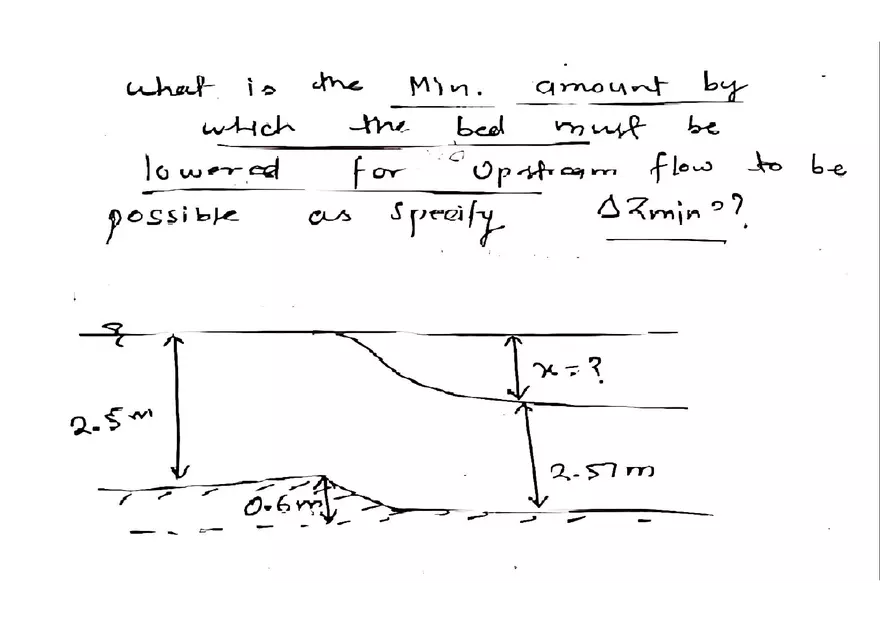 what is the Min. amount by
which the bed must be
lowered for Upstream flow to be
possible as specify ΔZmin=?
x=?
2.5m
2.57m
0.6m